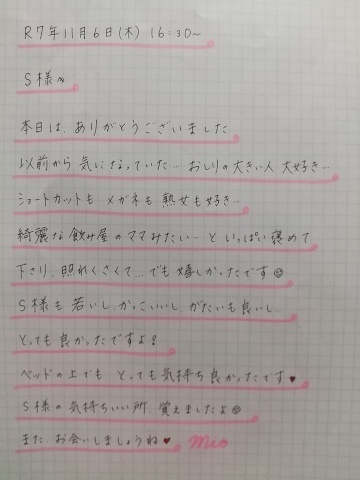 R7年11月6日(木) 16:30~
S様へ
本日は、ありがとうございました
以前から気になっていた… おしりの大きい人 大好き…
ショートカットも メガネも 熟女も好き…
綺麗な飲み屋のママみたい… と いっぱい褒めて
下さり、照れくさくて… でも嬉しかったです☺
S様も 若いし、かっこいいし、がたいも良いし…
とっても良かったですよ!
ベッドの上でも とっても気持ち良かったです♥
S様の気持ちいい所、覚えましたよ☺
また お会いしましょうね♥ mio